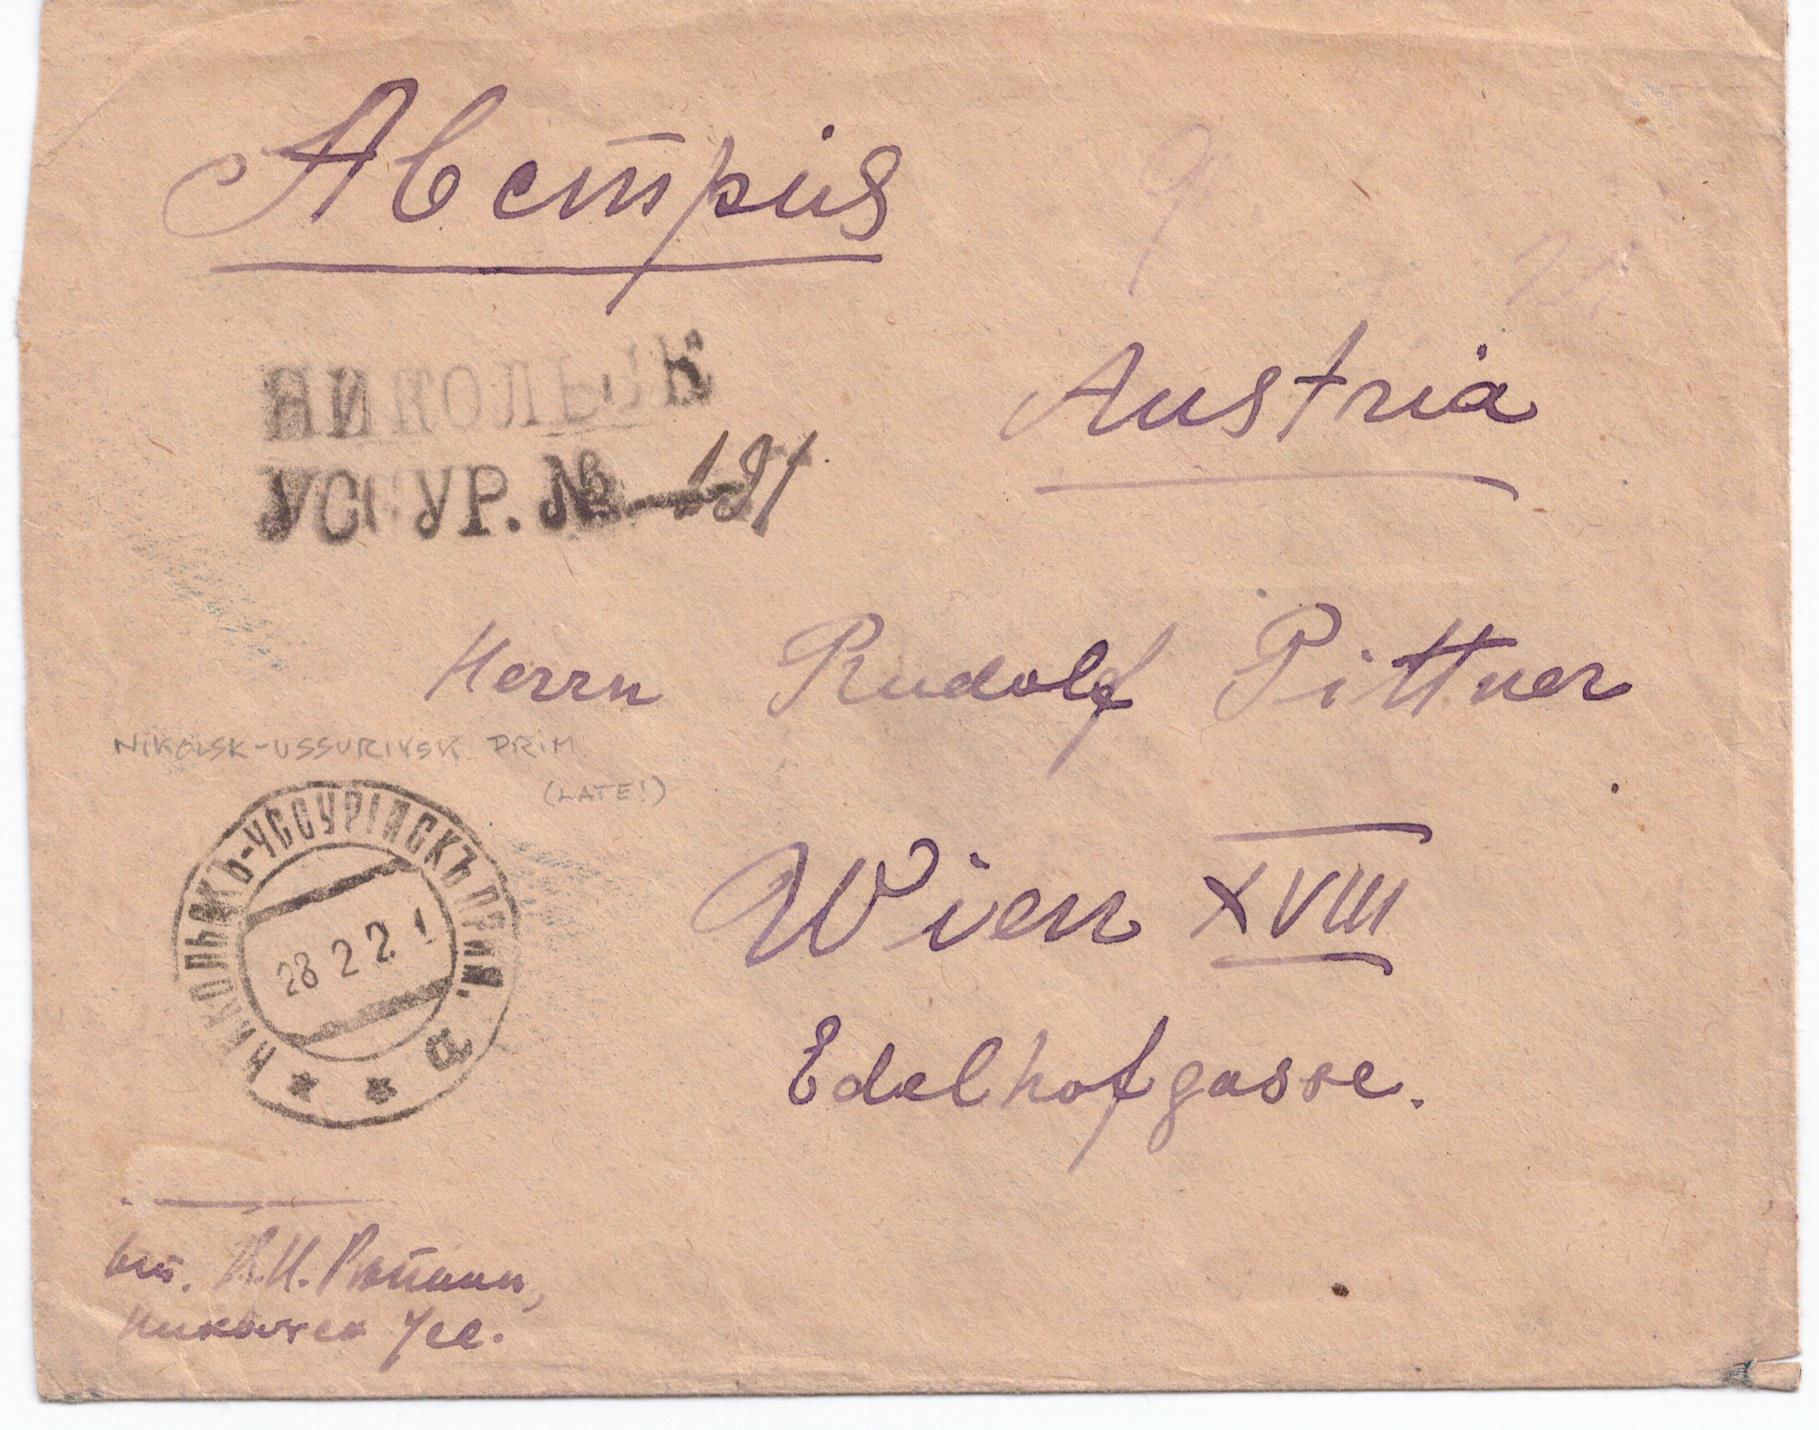 Австрія
Austria
НИКОЛЬСК
УССУР. № 121
Herrn Rudolf Pittner
NIKOLSK-USSURIYSK PRIM
(LATE!)
НИКОЛЬСКЪ-УССУРІЙСКЪ ПРИМ. а
28 2 2 1
Wien XVIII
Edelhofgasse.
Никольск Усс.